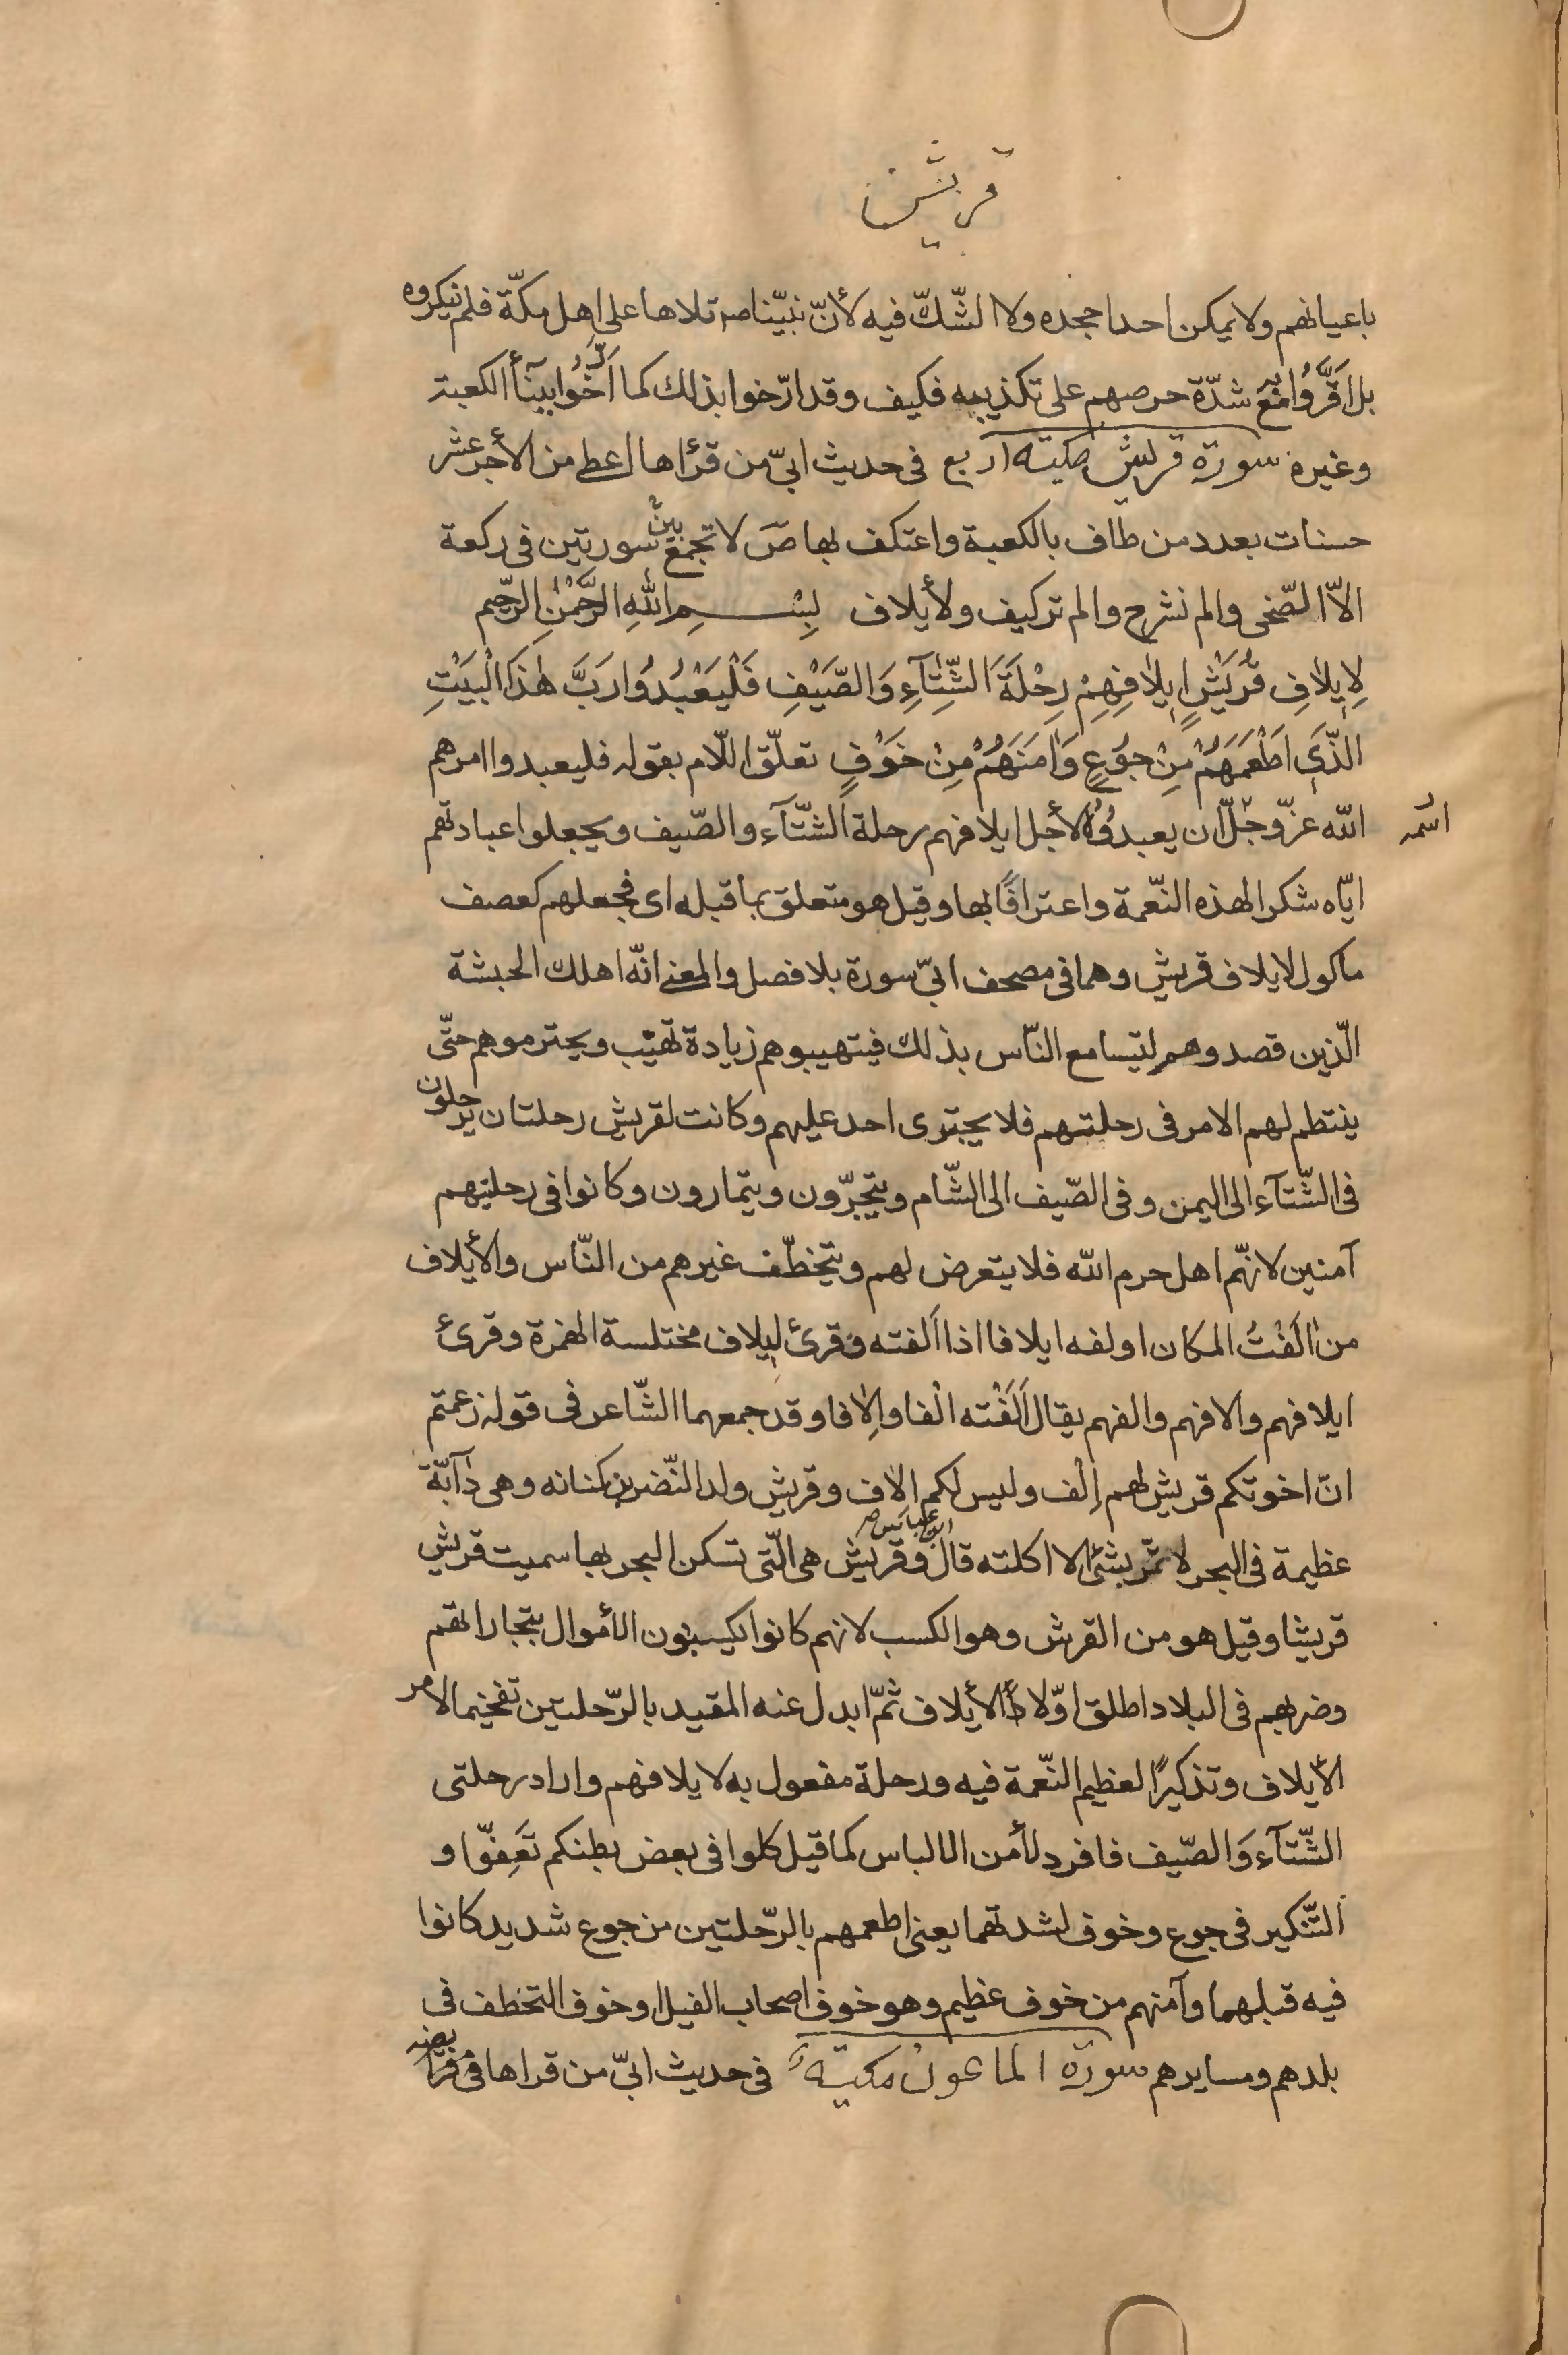 قريش
باعيانهم ولا يمكن احدا جحده ولا الشّكّ فيه لأنّ نبيّنا صم تلاها على اهل مكّة فلم ينكروه
بل اَقَرُّوا به مَعَ شدّة حرصهم على تكذيبه فكيف وقد ارّخوا بذلك كما اَرَّخُوا ببنآء الكعبة
وغيره سورة قريش مكيّه اربع فى حديث ابىّ من قرئاها اعطى من الأجر عشر
حسنات بعدد من طاف بالكعبة واعتكف بها صَ لا تجمع بين سورتين فى ركعة
الاّ الضّحى والم نشرح والم تر كيف ولأيلاف بِسْمِ اللهِ الرَّحْمٰنِ الرَّحيم
لِإيلافِ قُرَيْشٍ ايلافِهِمْ رِحْلَةَ الشِّتآءِ وَالصَّيْفِ فَلْيَعْبُدُوا رَبَّ هٰذَا الْبَيْتِ
الَّذى اَطْعَمَهُمْ مِنْ جُوعٍ وَاٰمَنَهُمْ مِنْ خَوْفٍ تعلّق اللّام بقوله فليعبدوا امرهم
الله عزّ وجلّ ان يعبدُوُهُ لأجل ايلافهم رحلة الشّتآء والصّيف ويجعلوا عبادتهم
ايّاه شكرا لهذه النّعمة واعترافًا بها وقيل هو متعلق بما قبله اى فجعلهم كعصف
ماكول لايلاف قريش وهما فى مصحف ابىّ سورة بلا فصل والمعنى انّه اهلك الحبشة
الّذين قصدوهم ليتسامع النّاس بذلك فيتهيبوهم زيادة تهيّب ويحترموهم حتّى
ينتظم لهم الامر فى رحلتهم فلا يجترى احد عليهم وكانت لقريش رحلتان يرحلون
فى الشّتآء الى اليمن وفى الصّيف الى الشّام ويتّجرّون ويتمارون وكانوا فى رحليتهم
آمنين لانّهم اهل حرم الله فلا يتعرض لهم ويتخطّف غيرهم من النّاس والأيلاف
من اٰلَفْتُ المكان اولفه ايلافا اذا اَلفته وقرئ ليلاف مختلسة الهمزة وقرئ
ايلافهم والافهم والفهم يقال اَلَفْته الْفا واِلافا وقد جمعهما الشّاعر فى قوله زعمتم
انّ اخوتكم قريش لهم اِلْف وليس لكم اِلاف وقريش ولد النّضر بن كنانه وهى دٰآبّة
عظيمة فى البحر لا تمّر بشئ الا اكلته قال ابن عباس وقريش هى الّتى تسكن البحر بها سميت قريش
قريشا وقيل هو من القرش وهو الكسب لانهم كانوا يكسبون الأموال بتجاراتهم
وضربهم فى البلاد اطلق اوّلا الأيلاف ثمّ ابدل عنه المقيد بالرّحلتين تفخيما لامر
الأيلاف وتذكيرًا لعظيم النّعمة فيه ورحلة مفعول به لايلافهم واراد رحلتى
الشّتآء وَالصّيف فافرد لأمن الالباس كما قيل كلوا فى بعض بطنكم تَعِفّوا و
التّنكير فى جوع وخوف لشدتهما يعنى اطعمهم بالرّحلتين من جوع شديد كانوا
فيه قبلهما وآمنهم من خوف عظيم وهو خوف اصحاب الفيل او خوف التخطف فى
بلدهم ومسايرهم سورة الماعون مكيّة فى حديث ابىّ من قراها فى